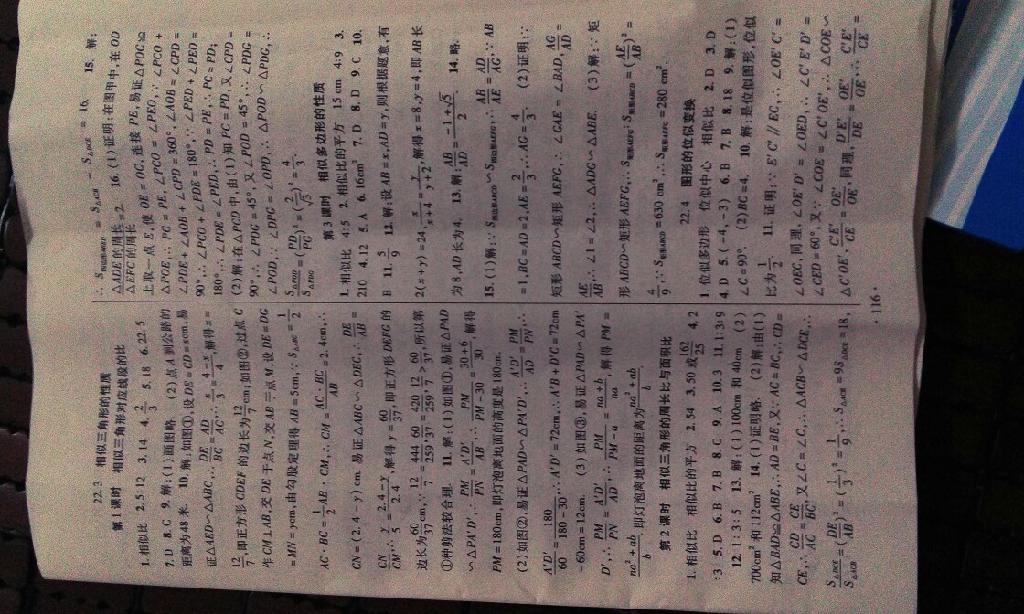 22.3 相似三角形的性质
第1课时 相似三角形对应线段的比
1.相似比 2.5:12 3.1:4 4.2/5 5.18 6.22.5
7.D 8.C 9.解:(1)画图略 (2)点A到公路的
距离为48米. 10.解:如图①,设DE=CD=xcm,易
证△AED∽△ABC,∴DE/BC=AD/AC,∴x/3=(4-x)/4,解得x=
12/7,即正方形CDEF的边长为12/7cm;如图②,过点C
作CM⊥AB,交DE于点N,交AB于点M.设DE=DG
=MN=ycm,由勾股定理得AB=5cm,∵S△ABC=1/2
AC·BC=1/2AB·CM,∴CM=AC·BC/AB=2.4cm,∴
CN=(2.4-y)cm.易证△ABC∽△DEC,∴DE/AB=
CN/CM,∴y/5=(2.4-y)/2.4,解得y=60/37,即正方形DEFG的
边长为60/37cm,∵12/7=444/259,60/37=420/259,12/7>60/37,所以第
①种剪法较合理. 11.解:(1)如图①,易证△PAD
∽△PA'D',∴PN/PM=A'D'/AB,解得
PM=180cm,即灯泡离地面的高度是180cm.
(2)如图②,易证△PAD∽△PA'D',∴A'D'/AD=PM/PN,∴
A'D'/60=180/(180-30),∴A'D'=72cm,∴A'B+D'C=72cm
-60cm=12cm. (3)如图③,易证△PAD∽△PA'
D',∴PM/PN=A'D'/AD,解得PM=
即灯泡离地面的距离为
第2课时 相似三角形的周长比与面积比
1.相似比 相似比的平方 2.54 3.50或162/25 4.2
:3 5.D 6.B 7.B 8.C 9.A 10.3 11.1:3:9
12.1:3:5 13.解:(1)100cm和40cm (2)
700cm²和112cm² 14.(1)证明略. (2)解:由(1)
知△BAD≌△ABE,∴AD=BE,又∵AC=BC,∴CD=
CE,∴CD/AC=CE/BC,又∠C=∠C,∴△ACB∽△DCE,∴
S△DCE/S△ACB=(DE/AB)²=(1/3)²=1/9,∴S△ACB=9S△DCE=18,
∴S四边形ABED=S△ACB-S△DCE=16. 15.解:
△ADE的周长/△EFC的周长=2. 16.(1)证明:在图甲中,在OD
上取一点E,使OE=OC,连接PE,易证△POC≌
△POE,∴PC=PE,∠PCO=∠PEO,∵∠PCO+
∠PDE+∠AOB+∠CPD=360°,∠AOB=∠CPD=
90°,∴∠PCO+∠PDE=180°,∵∠PED+∠PEO=
180°,∴∠PDE=∠PED,∴PD=PE,∴PC=PD;
(2)解:在△PCD中,由(1)知PC=PD,又∠CPD=
90°,∴∠PDG=45°,又∠POD=45°,∴∠PDG=
∠POD,∵∠DPG=∠OPD,∴△POD∽△PDG,∴
第3课时 相似多边形的性质
1.相似比 4:5 2.相似比的平方 15cm 4:9 3.
210 4.12 5.A 6.16cm² 7.D 8.D 9.C 10.
B 11.5/9 12.解:设AB=x,AD=y,则根据题意,有
2(x+y)=24,x/(x+4)=y/(y+2),解得x=8,y=4,即AB长
为8,AD长为4. 13.解:AB/AD=(-1+√5)/2. 14.略.
15.(1)解:∵S矩形ABCD∽S矩形AEFG,∴AB/AE=AD/AG,∵AB
=1,BC=AD=2,AE=2/3,∴AG=4/3. (2)证明:∵
矩形ABCD∽矩形AEFG,∴∠GAE=∠BAD,AG/AD=
AE/AB,∴∠1=∠2,∴△ADG∽△ABE. (3)解:∵矩
形ABCD∽矩形AEFG,∴S矩形AEFG:S矩形ABCD=(AE/AB)²=
4/9,∵S矩形ABCD=630cm²,∴S矩形AEFG=280cm².
22.4 图形的位似变换
1.位似多边形 位似中心 相似比 2.D 3.D
4.D 5.(-4,-3) 6.B 7.B 8.18 9.解:(1)
∠C=90°. (2)BC=4. 10.解:是位似图形,位似
比为1/2. 11.证明:∵E'C'∥EC,∴∠OE'C'=
∠OEC,同理,∠OE'D'=∠OED,∴∠C'E'D'=
∠CED=60°,又∵∠COE=∠C'OE',∴△COE∽
△C'OE',C'E'/CE=OE'/OE,同理,D'E'/DE=OE'/OE,∴C'E'/CE=
·116·